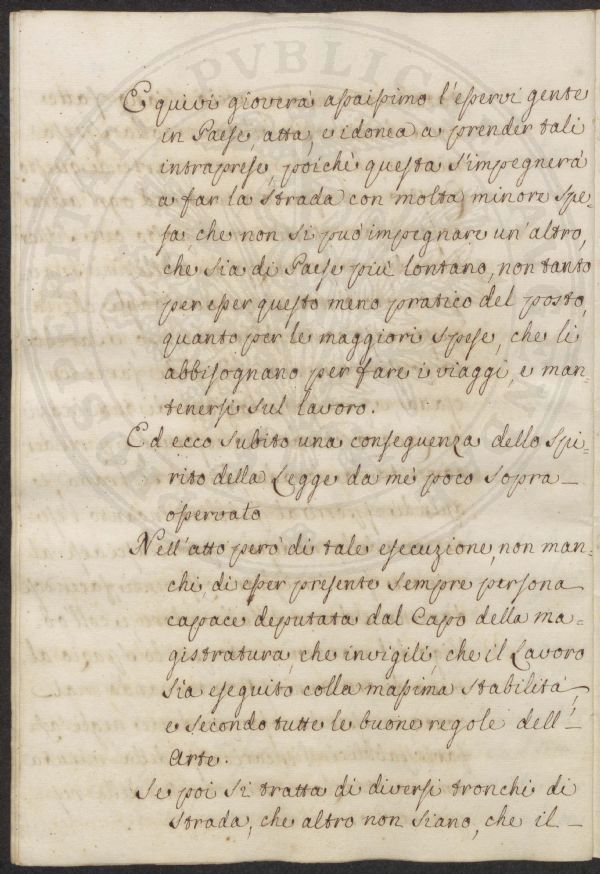 E quivi gioverà assaissimo l'esservi gente
in Paese, atta, e idonea a prender tali
intraprese, poichè questa s'impegnerà
a far la strada con molta minore spe=
sa, che non si può impegnare un'altro,
che sia di Paese più lontano, non tanto
per esser questo meno pratico del posto,
quanto per le maggiori spese, che li
abbisognano per fare i viaggi, e man=
tenersi sul lavoro.
Ed ecco subito una conseguenza dello spi=
rito della Legge da mè poco sopra
osservato
Nell'atto però di tale esecuzione, non man=
chi, di esser presente sempre persona
capace deputata dal Capo della ma=
gistratura, che invigili, che il Lavoro
sia eseguito colla massima stabilità,
e secondo tutte le buone regole dell'
Arte.
Se poi si tratta di diversi tronchi di
strada, che altro non siano, che il